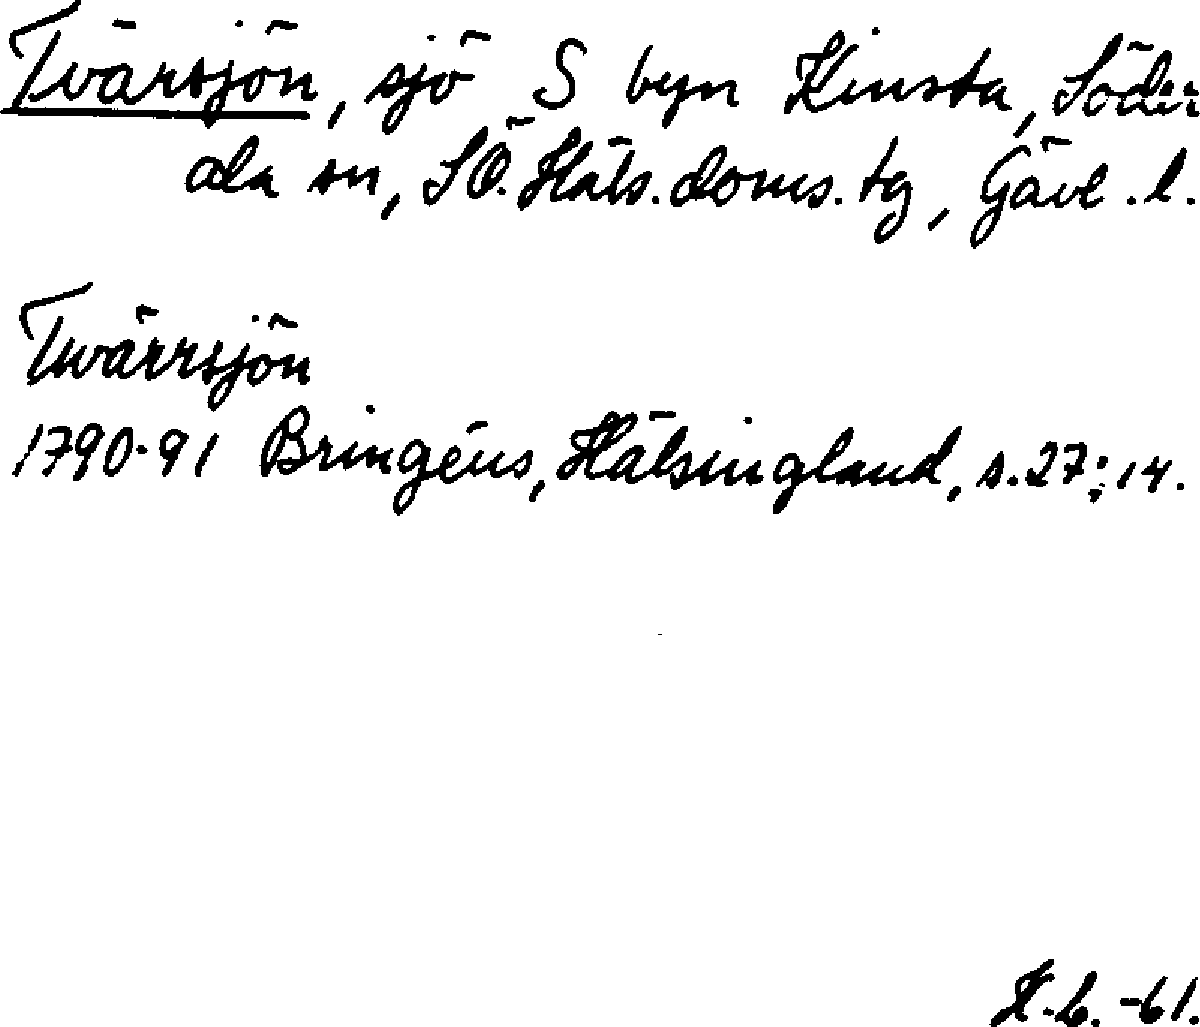 Tvärsjön, sjö S byn Kinsta, Söder
ala sn, SÖ. Häls. doms. tg, Gävl. l.
Twärrsjön
1790-91 Bringéus, Hälsingland, s. 27; 14.
K.b. -61.